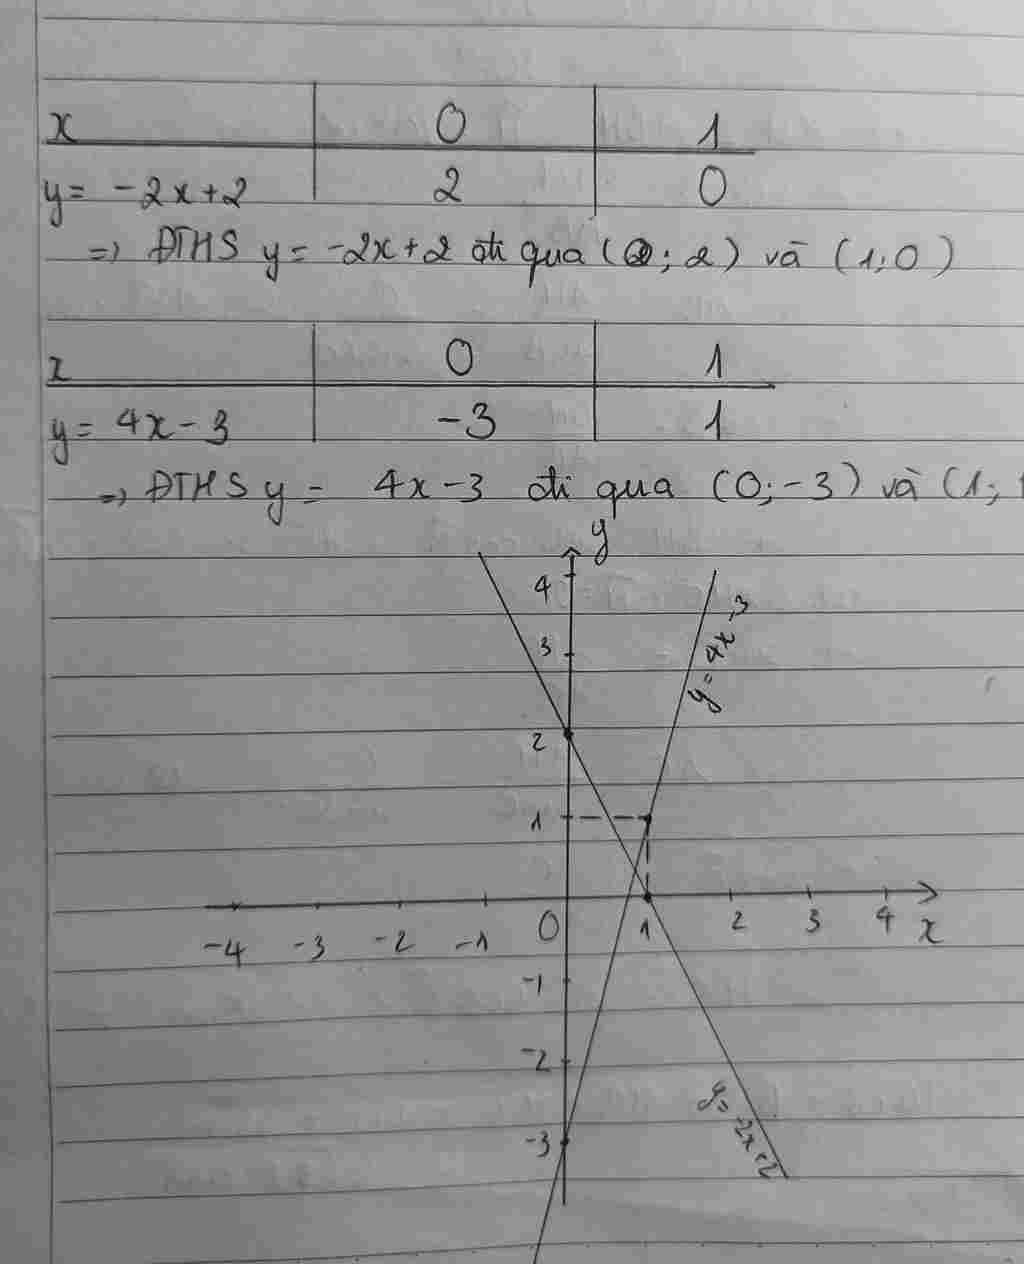 x 0 1
y = -2x+2 2 0
=> ĐTHS y = -2x+2 đi qua (0; 2) và (1; 0)
x 0 1
y = 4x-3 -3 1
=> ĐTHS y = 4x-3 đi qua (0; -3) và (1;
y
4
y = 4x-3
3
2
1
-4 -3 -2 -1 0 1 2 3 4 x
-1
-2
y = -2x+2
-3